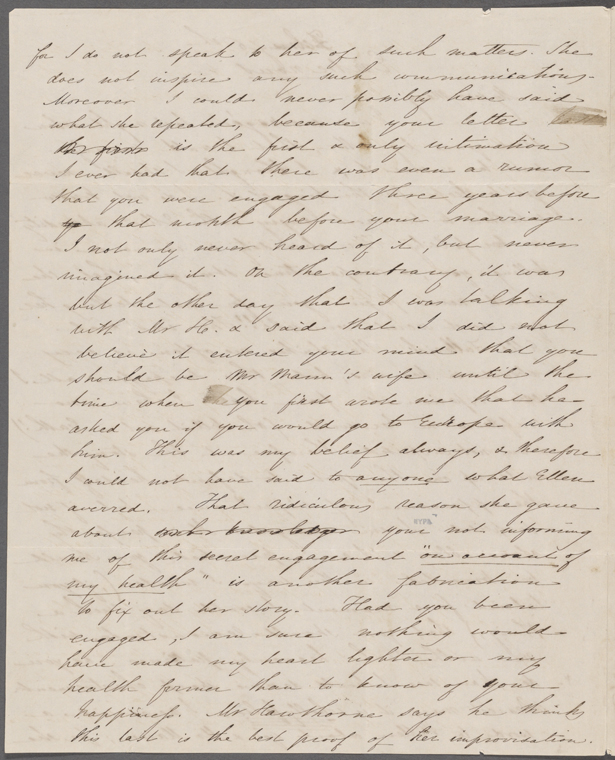 for I do not speak to her of such matters. She
does not inspire any such communications.
Moreover I could never possibly have said
what she repeated, because your letter
is the first & only intimation
I ever had that there was even a rumor
that you were engaged three years before
that month before your marriage.
I not only never heard of it, but never
imagined it. On the contrary, it was
but the other day that I was talking
with Mr H. & said that I did not
believe it entered your mind that you
should be Mr Mann's wife until the
time when you first wrote me that he
asked you if you would go to Europe with
him. This was my belief always, & therefore
I could not have said to anyone what Ellen
averred. That ridiculous reason she gave
about your not informing
me of this secret engagement "on account of
my health" is another fabrication
to fix out her story. Had you been
engaged, I am sure nothing would
have made my heart lighter or my
health firmer than to know of your
happiness. Mr Hawthorne says he thinks
this last is the best proof of her improvisation.
NYPL